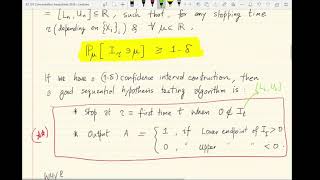 = [Ln, Un] ⊆ R, such that, for any stopping time
τ (depending on {Xi}), & ∀ μ ∈ R,
Pμ [ Iτ ∋ μ ] ≥ 1-δ
If we have a (1-δ) confidence interval construction, then
a good sequential hypothesis testing algorithm is : [Lt, Ut]
* Stop at τ = first time t when 0 ∉ It
* Output A = { 1, if Lower endpoint of Iτ > 0
0, " Upper " " < 0.